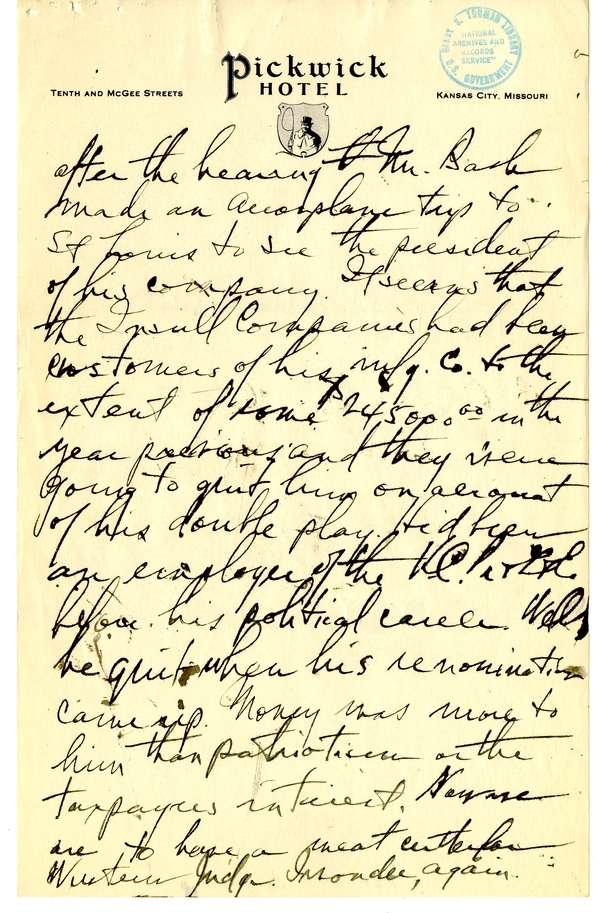 HARRY S. TRUMAN LIBRARY
NATIONAL
ARCHIVES AND
RECORDS
SERVICE
U.S. GOVERNMENT
Pickwick
HOTEL
TENTH AND MCGEE STREETS
KANSAS CITY, MISSOURI
after the hearing Mr. Bash
made an aeroplane trip to
St Louis to see the president
of his company. It seems that
the Insull Companies had been
customers of his mfg. Co. to the
extent of some $245000⁰⁰ in the
year previous and they were
going to quit him on account
of his double play. He'd been
an employee of the K.C.P. & L.
before his political career. Well
he quit when his renomination
came up. Money was more to
him than patriotism or the
taxpayers interest. Now we
are to have a meat cutter for
Western Judge. I wonder, again.